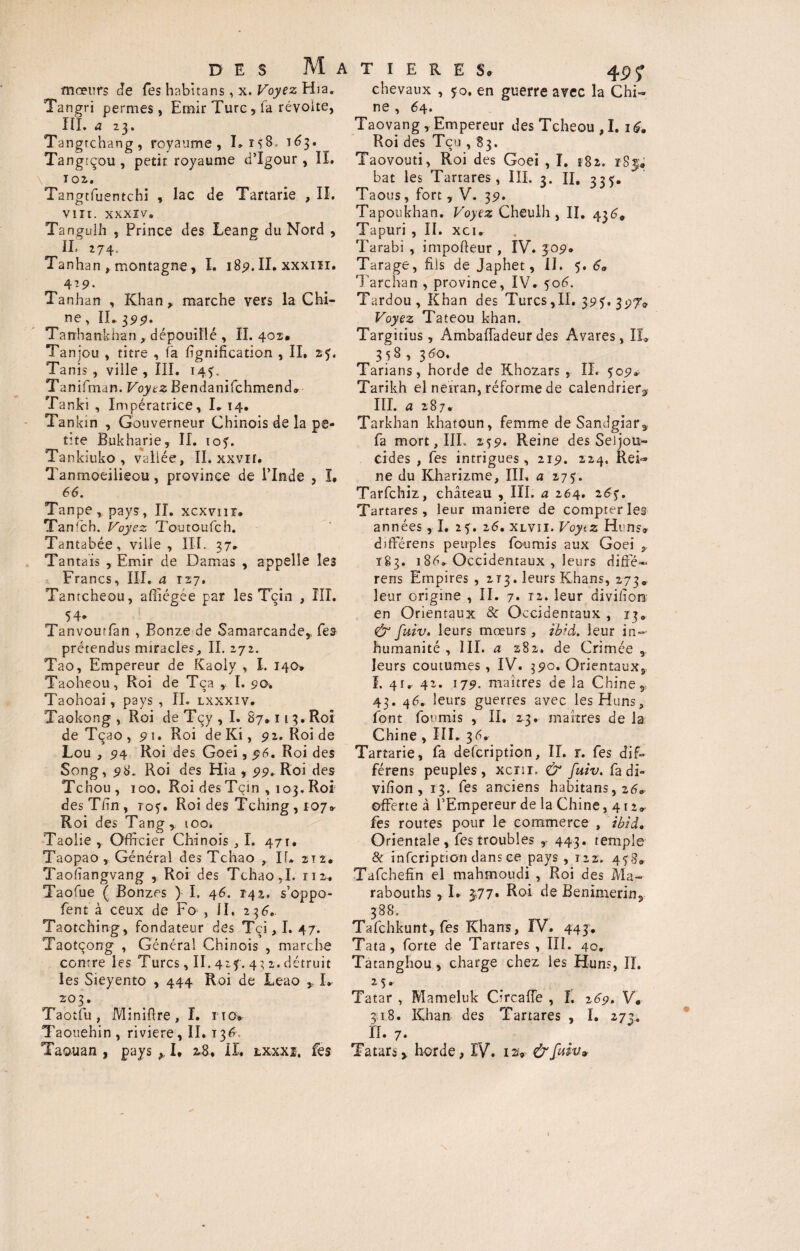 DES MATIERES. 495
mœurs de ses habitans, x. Voyez Hia.
Tangri permes, Emir Turc, sa révolte,
III. a 23.
Tangtchang, royaume, I. 158. 163.
Tangtçou, petit royaume d'Igour, II.
102.
Tangtsuentchi, lac de Tartarie, II.
VIII. XXXIV.
Tangulh, Prince des Leang du Nord,
II. 274.
Tanhan, montagne, I. 189. II. XXXIII.
419.
Tanhan, Khan, marche vers la Chi-
ne, II. 399.
Tanhankhan, dépouillé, II. 402.
Tanjou, titre, sa signification, II. 25.
Tanis, ville, III. 145.
Tanisman. Voyez Bendanischmend.
Tanki, Impératrice, I. 14.
Tankin, Gouverneur Chinois de la pe-
tite Bukharie, II. 105.
Tankiuko, vallée, II. XXVII.
Tanmoeilieou, province de l'Inde, I.
66.
Tanpe, pays, II. XCXVIII.
Tansch. Voyez Toutousch.
Tantabée, ville, III. 37.
Tantais, Emir de Damas, appelle les
Francs, III. a 127.
Tantcheou, assiégée par les Tçin, III.
54.
Tanvoutsan, Bonze de Samarcande, ses
prétendus miracles, II. 272.
Tao, Empereur de Kaoly, I. 140.
Taoheou, Roi de Tça, I. 90.
Taohoai, pays, II. LXXXIV.
Taokong, Roi de Tçy, I. 87. 113. Roi
de Tçao, 91. Roi de Ki, 92. Roi de
Lou, 94 Roi des Goei, 96. Roi des
Song, 98. Roi des Hia, 99. Roi des
Tchou, 100. Roi des Tçin, 103. Roi
des Tsin, 105. Roi des Tching, 107.
Roi des Tang, 100.
Taolie, Officier Chinois, I. 471.
Taopao, Général des Tchao, II. 212.
Taosiangvang, Roi des Tchao, I. 112.
Taosue ( Bonzes ) I. 46. 142. s'oppo-
sent à ceux de Fo, II. 236.
Taotching, fondateur des Tçi, I. 47.
Taotçong, Général Chinois, marche
contre les Turcs, II. 425. 432. détruit
les Sieyento, 444 Roi de Leao, I.
203.
Taotsu, Ministre, I. 110.
Taouehin, riviere, II. 136.
Taouan, pays, I. 28. II. LXXXI. ses
chevaux, 50. en guerre avec la Chi-
ne, 64.
Taovang, Empereur des Tcheou, I. 16.
Roi des Tçu, 83.
Taovouti, Roi des Goei, I. 182. 185.
bat les Tartares, III. 3. II. 335.
Taous, fort, V. 39.
Tapoukhan. Voyez Cheulh, II. 436.
Tapuri, II. XCI.
Tarabi, imposteur, IV. 309.
Tarage, fils de Japhet, II. 5. 6.
Tarchan, province, IV. 506.
Tardou, Khan des Turcs, II. 395. 397.
Voyez Tateou khan.
Targitius, Ambassadeur des Avares, II.
358, 360.
Tarians, horde de Khozars, II. 509.
Tarikh el neiran, réforme de calendrier,
III. a 287.
Tarkhan khatoun, femme de Sandgiar,
sa mort, III. 259. Reine des Seljou-
cides, ses intrigues, 219. 224. Rei-
ne du Kharizme, III. a 275.
Tarschiz, château, III. a 264. 265.
Tartares, leur maniere de compter les
années, I. 25. 26. XLVII. Voyez Huns.
différens peuples soumis aux Goei,
183. 186. Occidentaux, leurs diffé-
rens Empires, 213. leurs Khans, 273.
leur origine, II. 7. 12. leur division
en Orientaux & Occidentaux, 13.
& suiv. leurs mœurs, ibid. leur in-
humanité, III. a 282. de Crimée,
leurs coutumes, IV. 390. Orientaux,
I. 41. 42. 179. maîtres de la Chine,
43. 46. leurs guerres avec les Huns,
sont soumis, II. 23. maîtres de la
Chine, III. 36.
Tartarie, sa description, II. 1. ses dif-
férens peuples, XCIII. & suiv. sa di-
vision, 13. ses anciens habitans, 26.
offerte à l'Empereur de la Chine, 412.
ses routes pour le commerce, ibid.
Orientale, ses troubles, 443. temple
& inscription dans ce pays, 122. 458.
Taschefin el mahmoudi, Roi des Ma-
rabouths, I. 377. Roi de Benimerin,
388.
Taschkunt, ses Khans, IV. 443.
Tata, sorte de Tartares, III. 40.
Tatanghou, charge chez les Huns, II.
25.
Tatar, Mameluk Circasse, I. 269. V.
318. Khan des Tartares, I. 273.
II. 7.
Tatars, horde, IV. 12. & suiv.